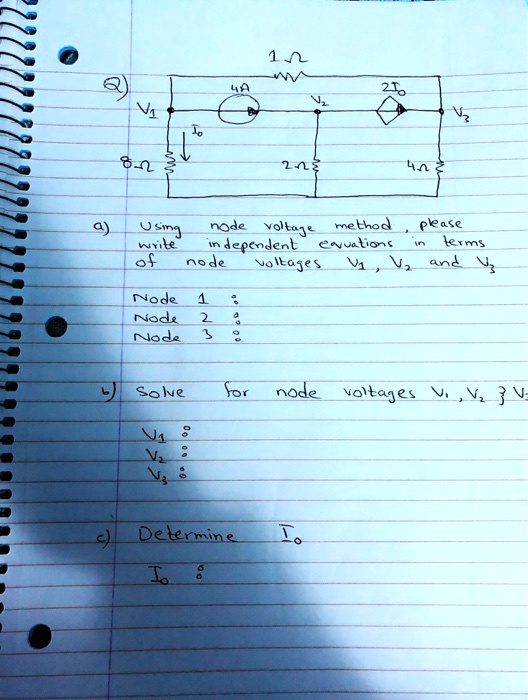 1 Ω
Q)
4A
2I₀
V₁
V₂
V₃
I₀
8Ω
2Ω
4Ω
a) Using node voltage method, please
write independent equations in terms
of node voltages V₁, V₂ and V₃
Node 1 :
Node 2 :
Node 3 :
b) Solve for node voltages V₁, V₂ } V
V₁ :
V₂ :
V₃ :
c) Determine I₀
I₀ :